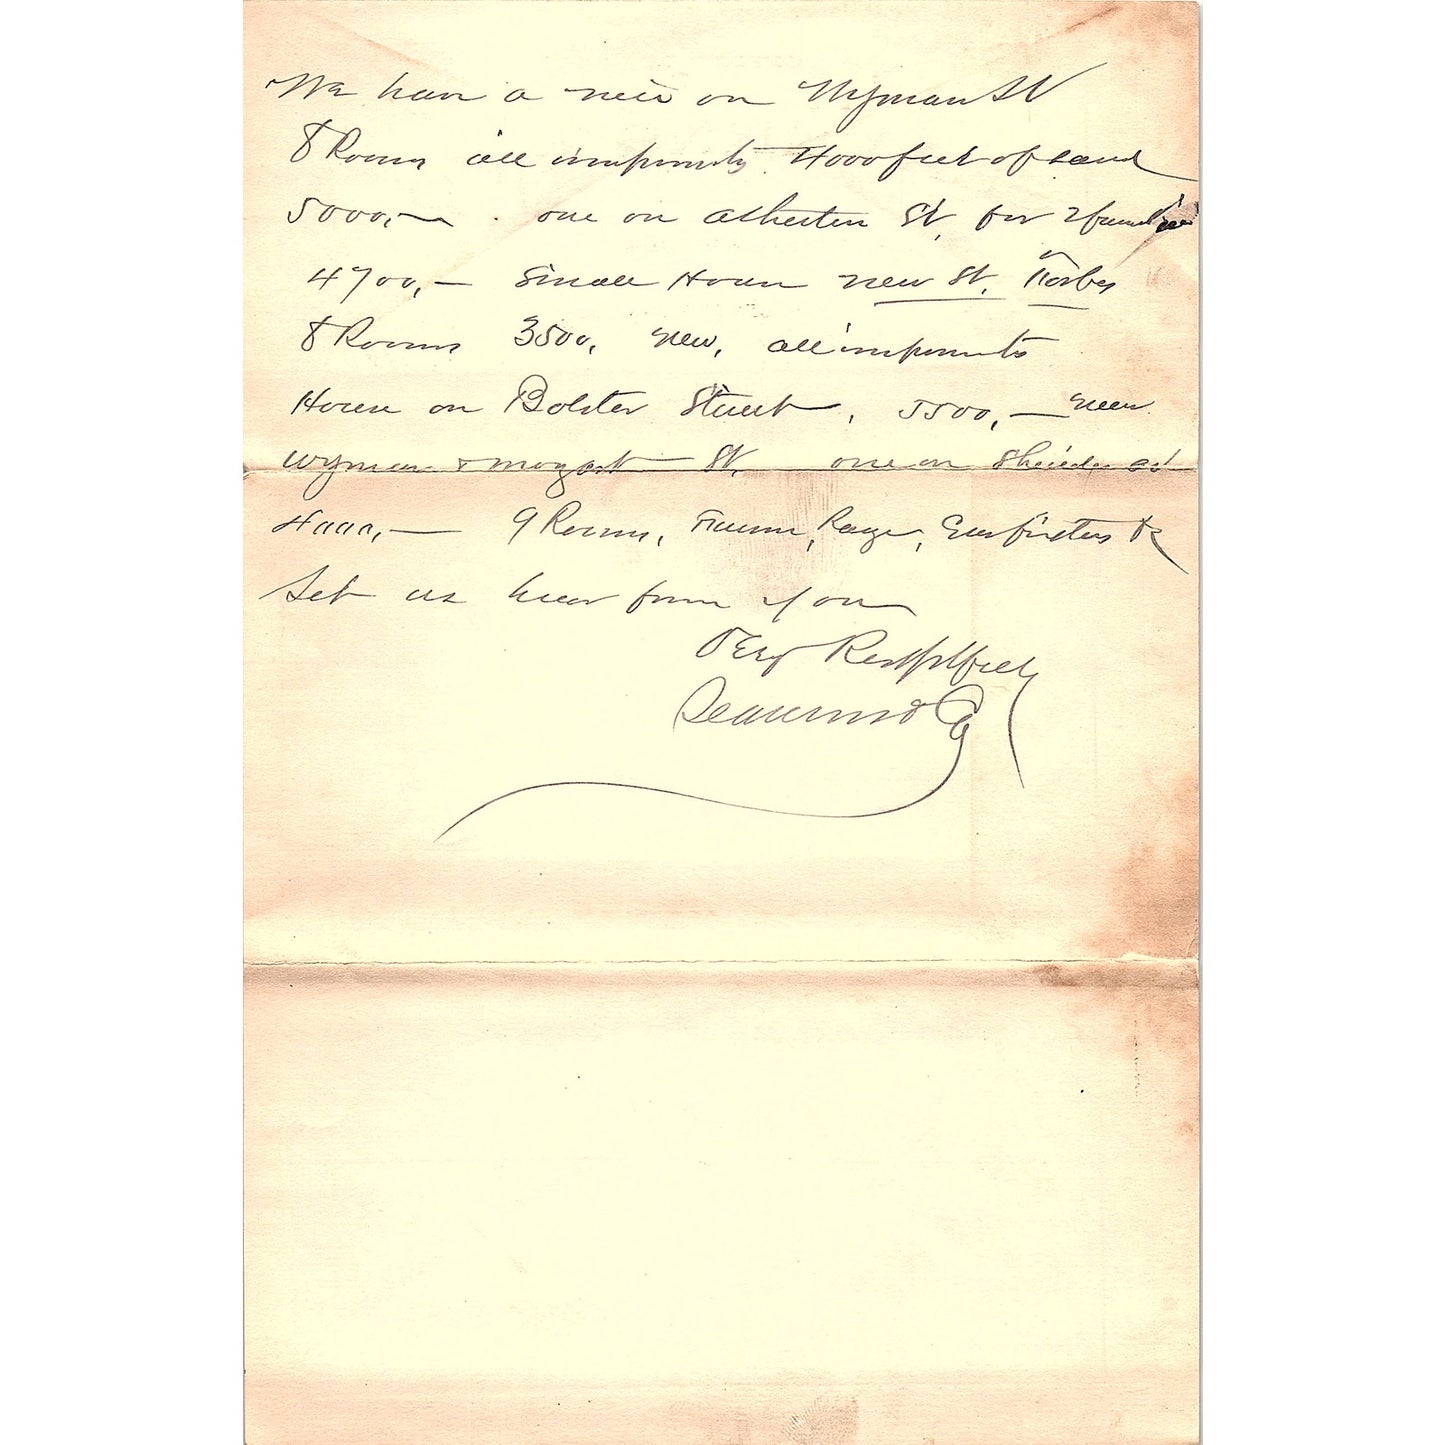 We have a nice on Wyman St
8 Rooms all improvmts. 4000 feet of land
5000,— . one on Atherton St, for 2 families
4700,— Small House new St. Forbes
8 Rooms 3500, new, all improvmts
House on Bolster Street, 5500,— near
Wyman & Mozart St. one on
4000,— 9 Rooms, Furnace, Range,
Let us hear from you
Very Respectfully
& Co